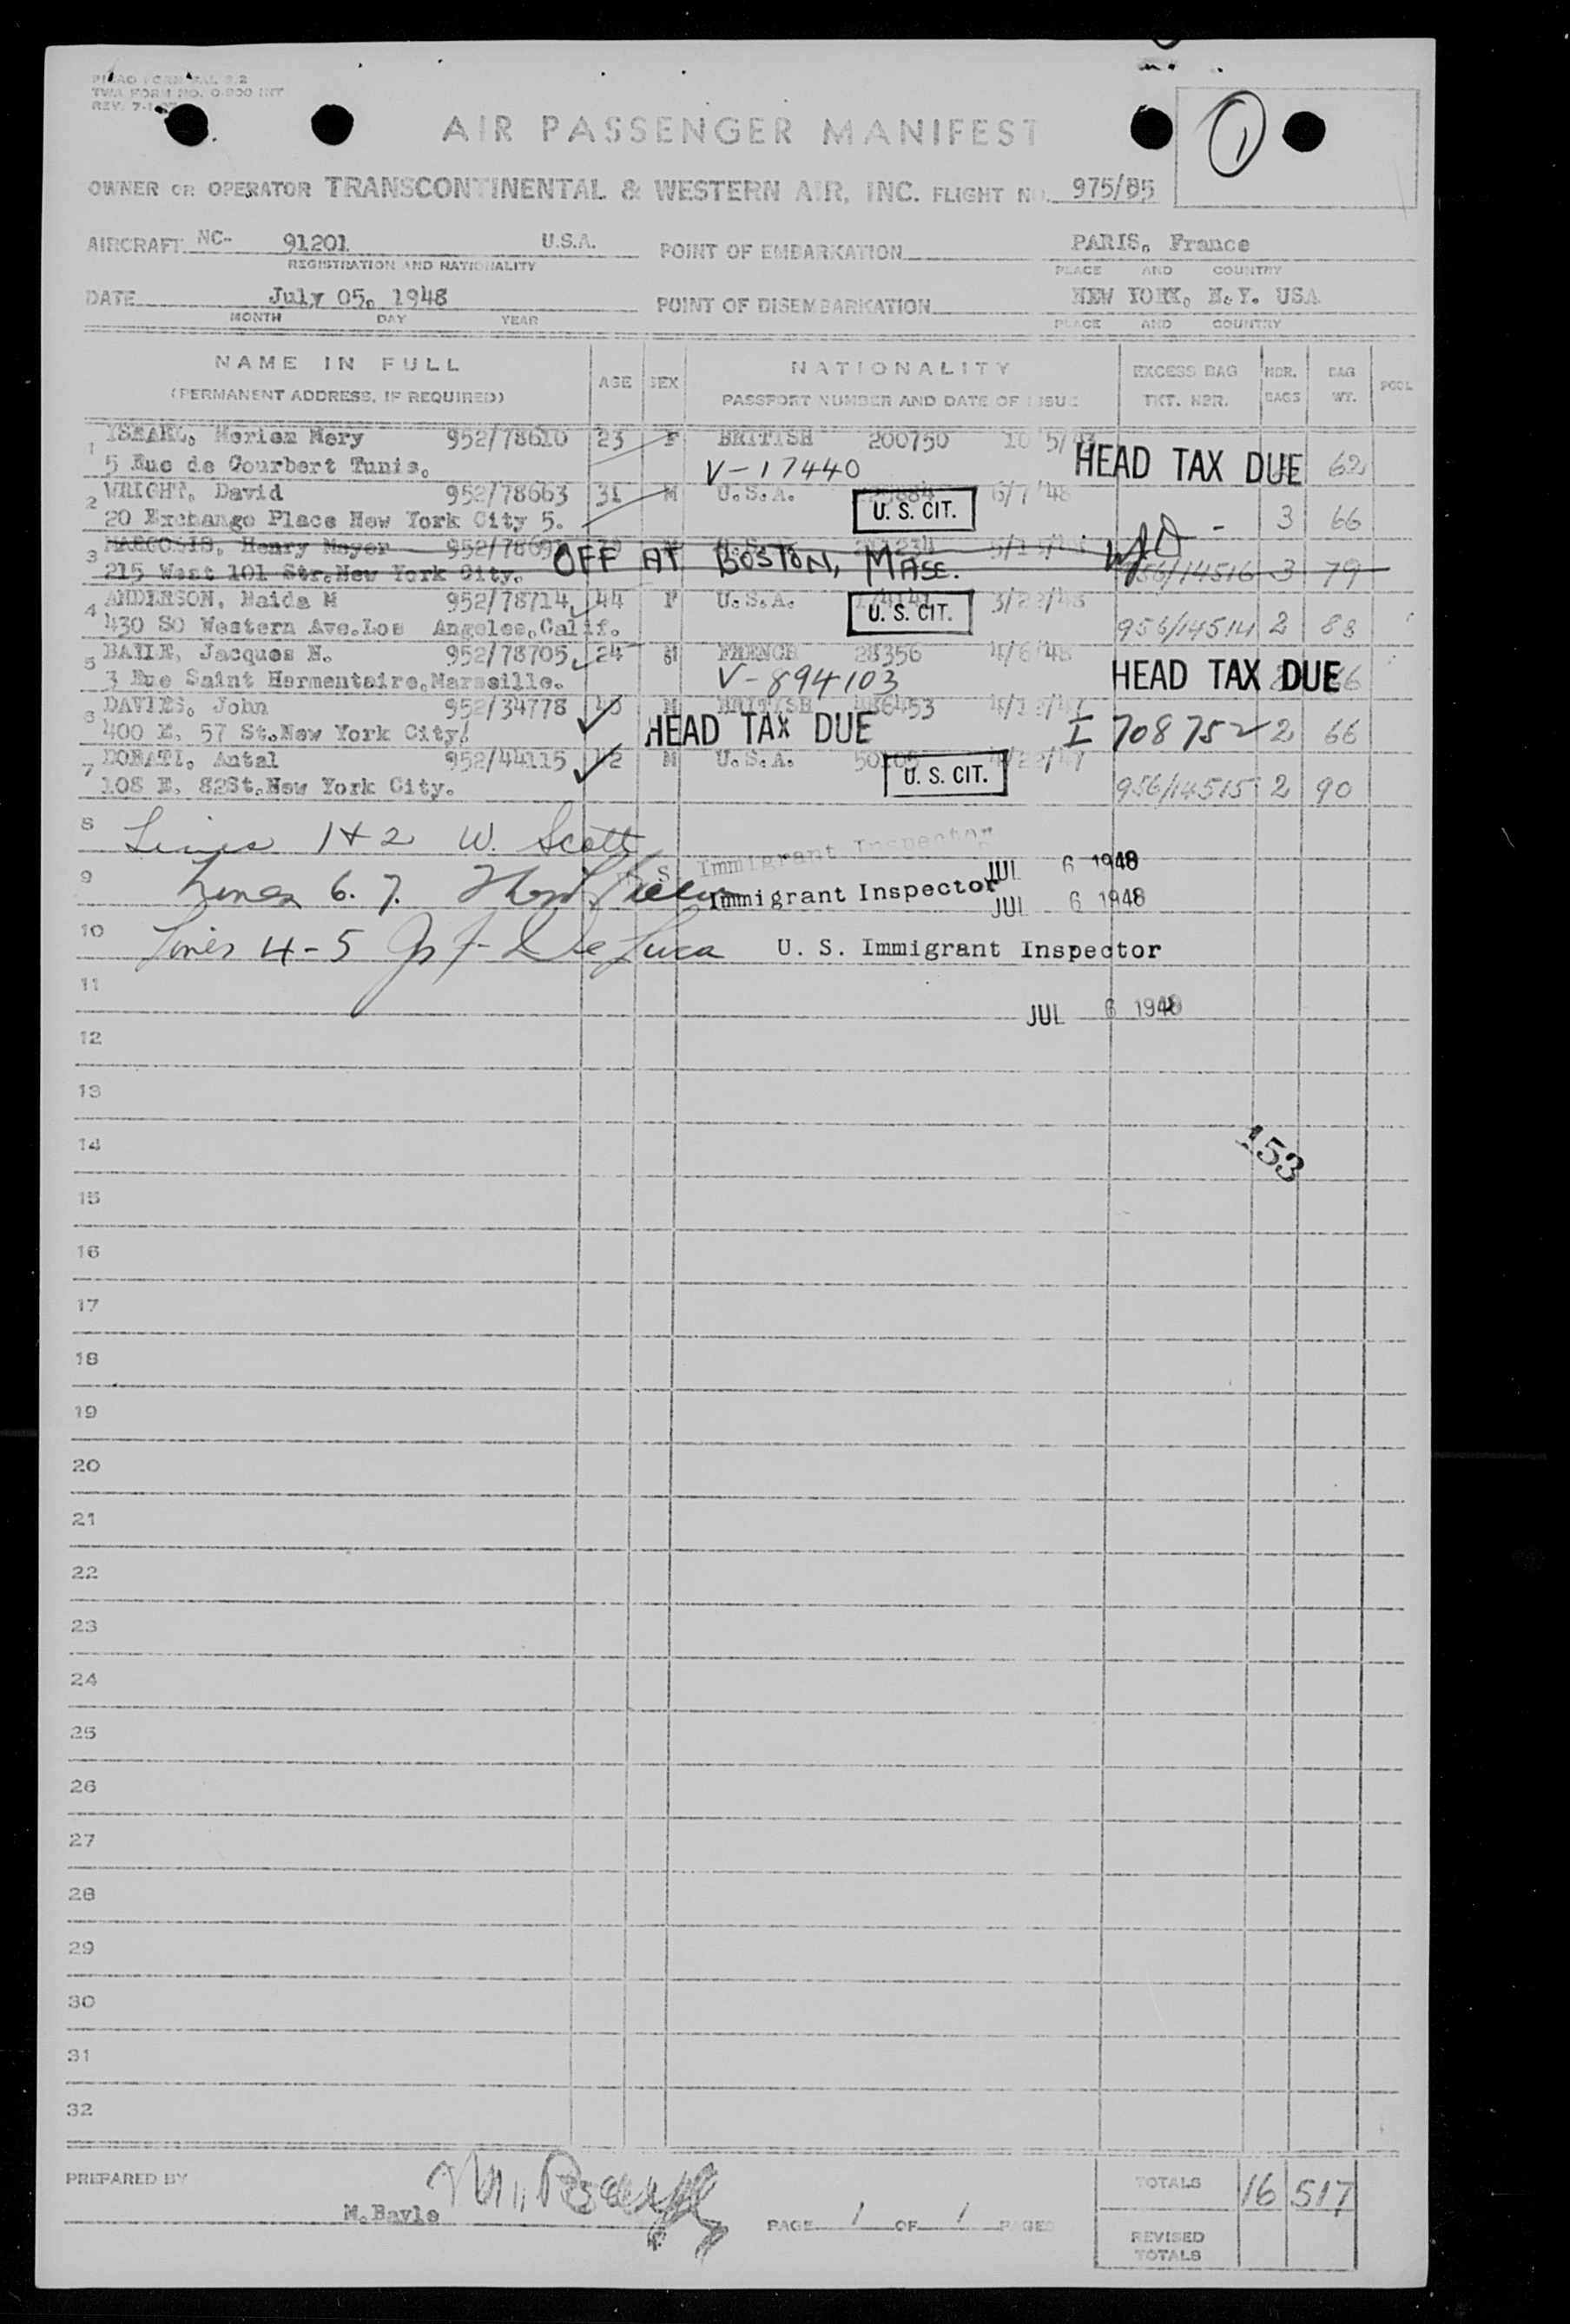 TWA FORM NO. 0-900 INT
REV. 7-1
1
AIR PASSENGER MANIFEST
OWNER OR OPERATOR TRANSCONTINENTAL & WESTERN AIR, INC. FLIGHT NO. 975/85
AIRCRAFT NC- 91201 U.S.A. POINT OF EMBARKATION PARIS, France
REGISTRATION AND NATIONALITY PLACE AND COUNTRY
DATE July 05, 1948 POINT OF DISEMBARKATION NEW YORK, N.Y. USA
MONTH DAY YEAR PLACE AND COUNTRY
NAME IN FULL AGE SEX NATIONALITY EXCESS BAG NBR. BAG POOL
(PERMANENT ADDRESS, IF REQUIRED) PASSPORT NUMBER AND DATE OF ISSUE TKT. NBR. BAGS WT.
1 952/78610 23 F BRITISH 200750
5 Rue de Courbert Tunis. V-17440 HEAD TAX DUE 62
2 WRIGHT, David 952/78663 31 M U.S.A. U. S. CIT. 6/7/48
20 Exchange Place New York City 5. 3 66
3 Henry Meyer OFF AT BOSTON, MASS.
215 West 101 Str. New York City. 956/14516 3 79
4 ANDERSON, Naida M 952/78714 44 F U.S.A. U. S. CIT. 3/22/48
430 SO Western Ave. Los Angeles, Calif. 956/14514 2 88
5 Jacques 952/78705 24 M FRENCH 28356 4/6/48
3 Rue Saint Hermentaire, Marseille. V-894103 HEAD TAX DUE
6 DAVIES, John 952/34778 M BRITISH
400 E, 57 St. New York City. HEAD TAX DUE I 708752 2 66
7 DORATI, Antal 952/44115 42 M U.S.A. U. S. CIT.
108 E, 82St. New York City. 956/14515 2 90
8 Lines 1+2 W. Scott Immigrant Inspector JUL 6 1948
9 Lines 6. 7. Immigrant Inspector JUL 6 1948
10 Lines 4-5 De Luca U. S. Immigrant Inspector
11 JUL 6 1948
12
13
14 153
15
16
17
18
19
20
21
22
23
24
25
26
27
28
29
30
31
32
PREPARED BY M. Bayle PAGE 1 OF 1 PAGES TOTALS 16 517
REVISED
TOTALS